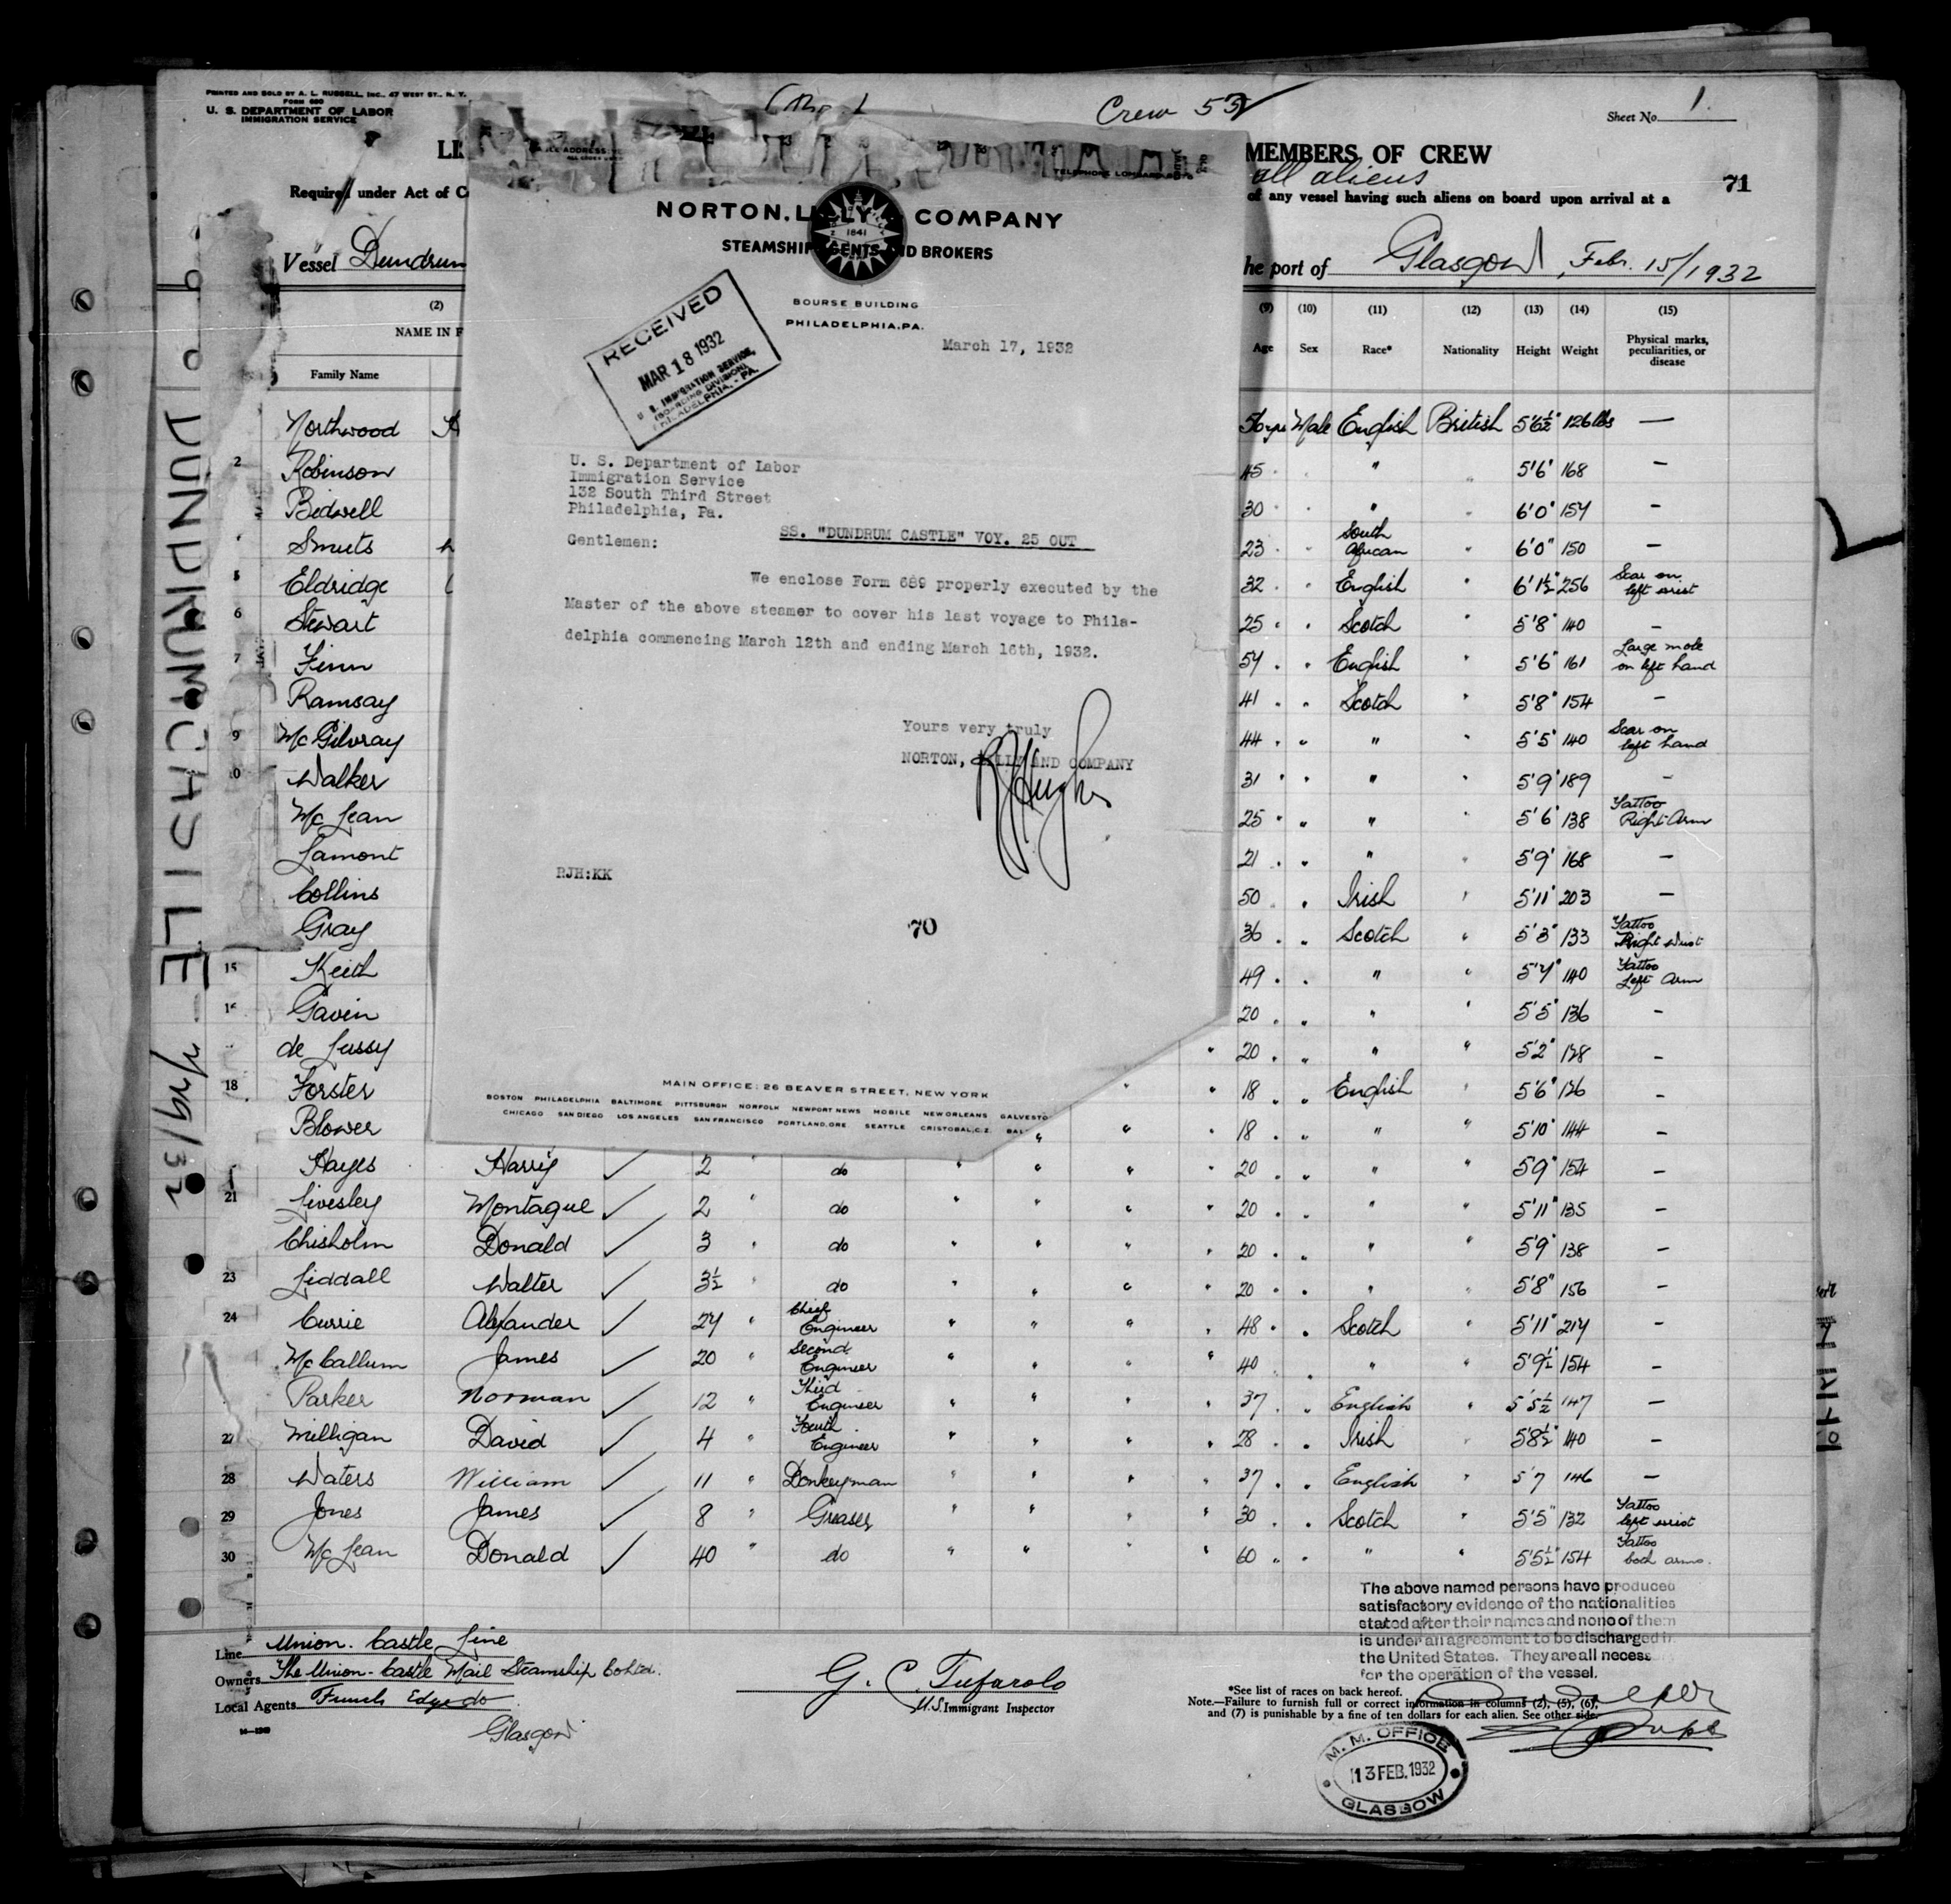 PRINTED AND SOLD BY A. L. RUSSELL, INC., 47 WEST ST., N. Y.
FORM 680
U. S. DEPARTMENT OF LABOR
IMMIGRATION SERVICE
Crew 53
Sheet No. 1.
MEMBERS OF CREW
all aliens
71
Required under Act of C
of any vessel having such aliens on board upon arrival at a
Vessel Dundrum
he port of Glasgow, Febr. 15/1932
(2)
NAME IN F
Family Name
(9) (10) (11) (12) (13) (14) (15)
Age Sex Race* Nationality Height Weight Physical marks, peculiarities, or disease
TELEPHONE LOMBARD
NORTON, LILLY & COMPANY
1841
STEAMSHIP AGENTS AND BROKERS
BOURSE BUILDING
PHILADELPHIA, PA.
RECEIVED
MAR 18 1932
U. S. IMMIGRATION SERVICE,
(BOARDING DIVISION)
PHILADELPHIA, - PA.
March 17, 1932
U. S. Department of Labor
Immigration Service
132 South Third Street
Philadelphia, Pa.
SS. "DUNDRUM CASTLE" VOY. 25 OUT
Gentlemen:
We enclose Form 689 properly executed by the
Master of the above steamer to cover his last voyage to Phila-
delphia commencing March 12th and ending March 16th, 1932.
Yours very truly
NORTON, LILLY AND COMPANY
RJHughes
RJH:KK
70
MAIN OFFICE: 26 BEAVER STREET, NEW YORK
BOSTON PHILADELPHIA BALTIMORE PITTSBURGH NORFOLK NEWPORT NEWS MOBILE NEW ORLEANS GALVESTO
CHICAGO SAN DIEGO LOS ANGELES SAN FRANCISCO PORTLAND, ORE SEATTLE CRISTOBAL, C.Z. BAL
DUNDRUM CASTLE
Northwood 56 yrs Male English British 5'6½" 126 lbs —
2 Robinson 45 " " " 5'6" 168 —
Bidwell 30 " " " 6'0" 154 —
Smuts 23 " South African " 6'0" 150 —
5 Eldridge 32 " English " 6'1½" 256 Scar on left wrist
6 Stewart 25 " Scotch " 5'8" 140 —
7 Finn 54 " English " 5'6" 161 Large mole on left hand
Ramsay 41 " Scotch " 5'8" 154 —
9 McGilvray 44 " " " 5'5" 140 Scar on left hand
0 Walker 31 " " " 5'9" 189 —
McLean 25 " " " 5'6" 138 Tattoo Right Arm
Lamont 21 " " " 5'9" 168 —
Collins 50 " Irish " 5'11" 203 —
Gray 36 " Scotch " 5'3" 133 Tattoo Right Wrist
15 Keith 49 " " " 5'4" 140 Tattoo Left Arm
Gavin 20 " " " 5'5" 136 —
de Lussy 20 " " " 5'2" 128 —
18 Forster 18 " English " 5'6" 126 —
Blower 18 " " " 5'10" 144 —
Hayes Harry 2 " do " " " " 20 " " " 5'9" 154 —
21 Livesley Montague 2 " do " " " " 20 " " " 5'11" 135 —
Chisholm Donald 3 " do " " " " 20 " " " 5'9" 138 —
23 Liddall Walter 3½ " do " " " " 20 " " " 5'8" 156 —
24 Currie Alexander 24 " Chief Engineer " " " " 48 " Scotch " 5'11" 214 —
McCallum James 20 " Second Engineer " " " " 40 " " " 5'9½" 154 —
Parker Norman 12 " Third Engineer " " " " 37 " English " 5'5½" 147 —
27 Milligan David 4 " Fourth Engineer " " " " 28 " Irish " 5'8½" 140 —
28 Waters William 11 " Donkeyman " " " " 37 " English " 5'7 146 —
29 Jones James 8 " Greaser " " " " 30 " Scotch " 5'5" 132 Tattoo left wrist
30 McLean Donald 40 " do " " " " 60 " " " 5'5½" 154 Tattoo both arms.
The above named persons have produced
satisfactory evidence of the nationalities
stated after their names and none of them
is under an agreement to be discharged in
the United States. They are all necess
for the operation of the vessel.
Line Union-Castle Line
Owners The Union-Castle Mail Steamship Co Ltd.
Local Agents
Glasgow
14-1249
G. C. Tufarolo
U.S. Immigrant Inspector
*See list of races on back hereof.
Note.—Failure to furnish full or correct information in columns (2), (5), (6),
and (7) is punishable by a fine of ten dollars for each alien. See other side.
M. M. OFFICE
13 FEB. 1932
GLASGOW